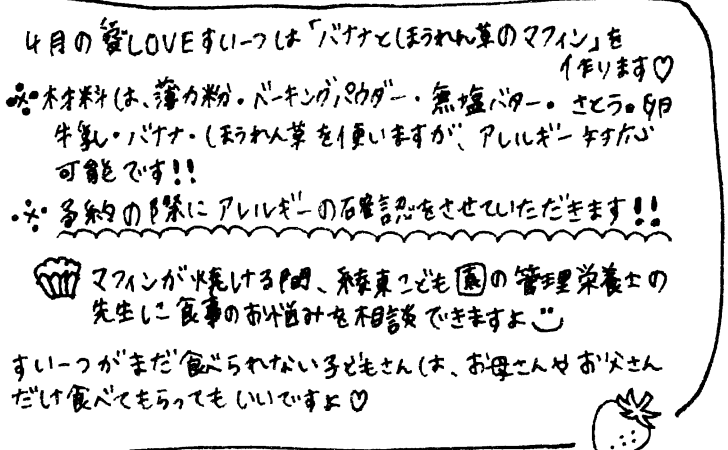 4月の愛LOVEすいーつは「バナナとほうれん草のマフィン」を
作ります♡
※材料は、薄力粉・ベーキングパウダー・無塩バター・さとう・卵
牛乳・バナナ・ほうれん草を使いますが、アレルギー対応
可能です!!
※予約の際にアレルギーの確認をさせていただきます!!
マフィンが焼ける間、綾東こども園の管理栄養士の
先生に食事のお悩みを相談できますよ
すいーつがまだ食べられない子どもさんは、お母さんやお父さん
だけ食べてもらってもいいですよ♡